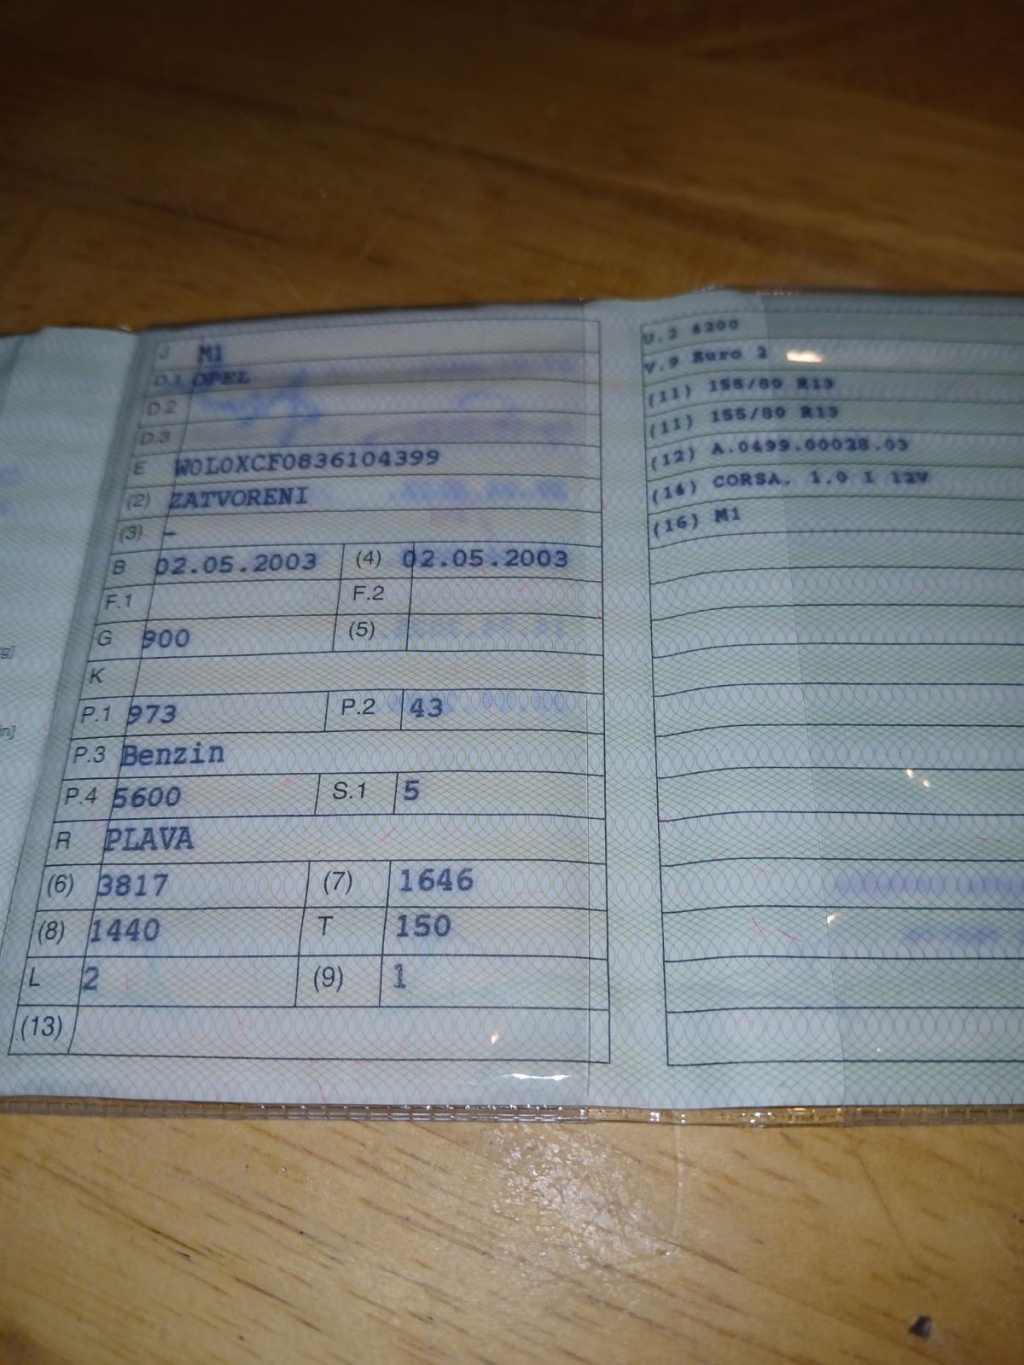 J M1
D.1 OPEL
D.2
D.3
E W0L0XCF0836104399
(2) ZATVORENI
(3) -
B 02.05.2003 (4) 02.05.2003
F.1 F.2
G 900 (5)
K
P.1 973 P.2 43
P.3 Benzin
P.4 5600 S.1 5
R PLAVA
(6) 3817 (7) 1646
(8) 1440 T 150
L 2 (9) 1
(13)
U.2 4200
V.9 Euro 2
(11) 155/80 R13
(11) 155/80 R13
(12) A.0499.00028.03
(14) CORSA, 1.0 I 12V
(16) M1